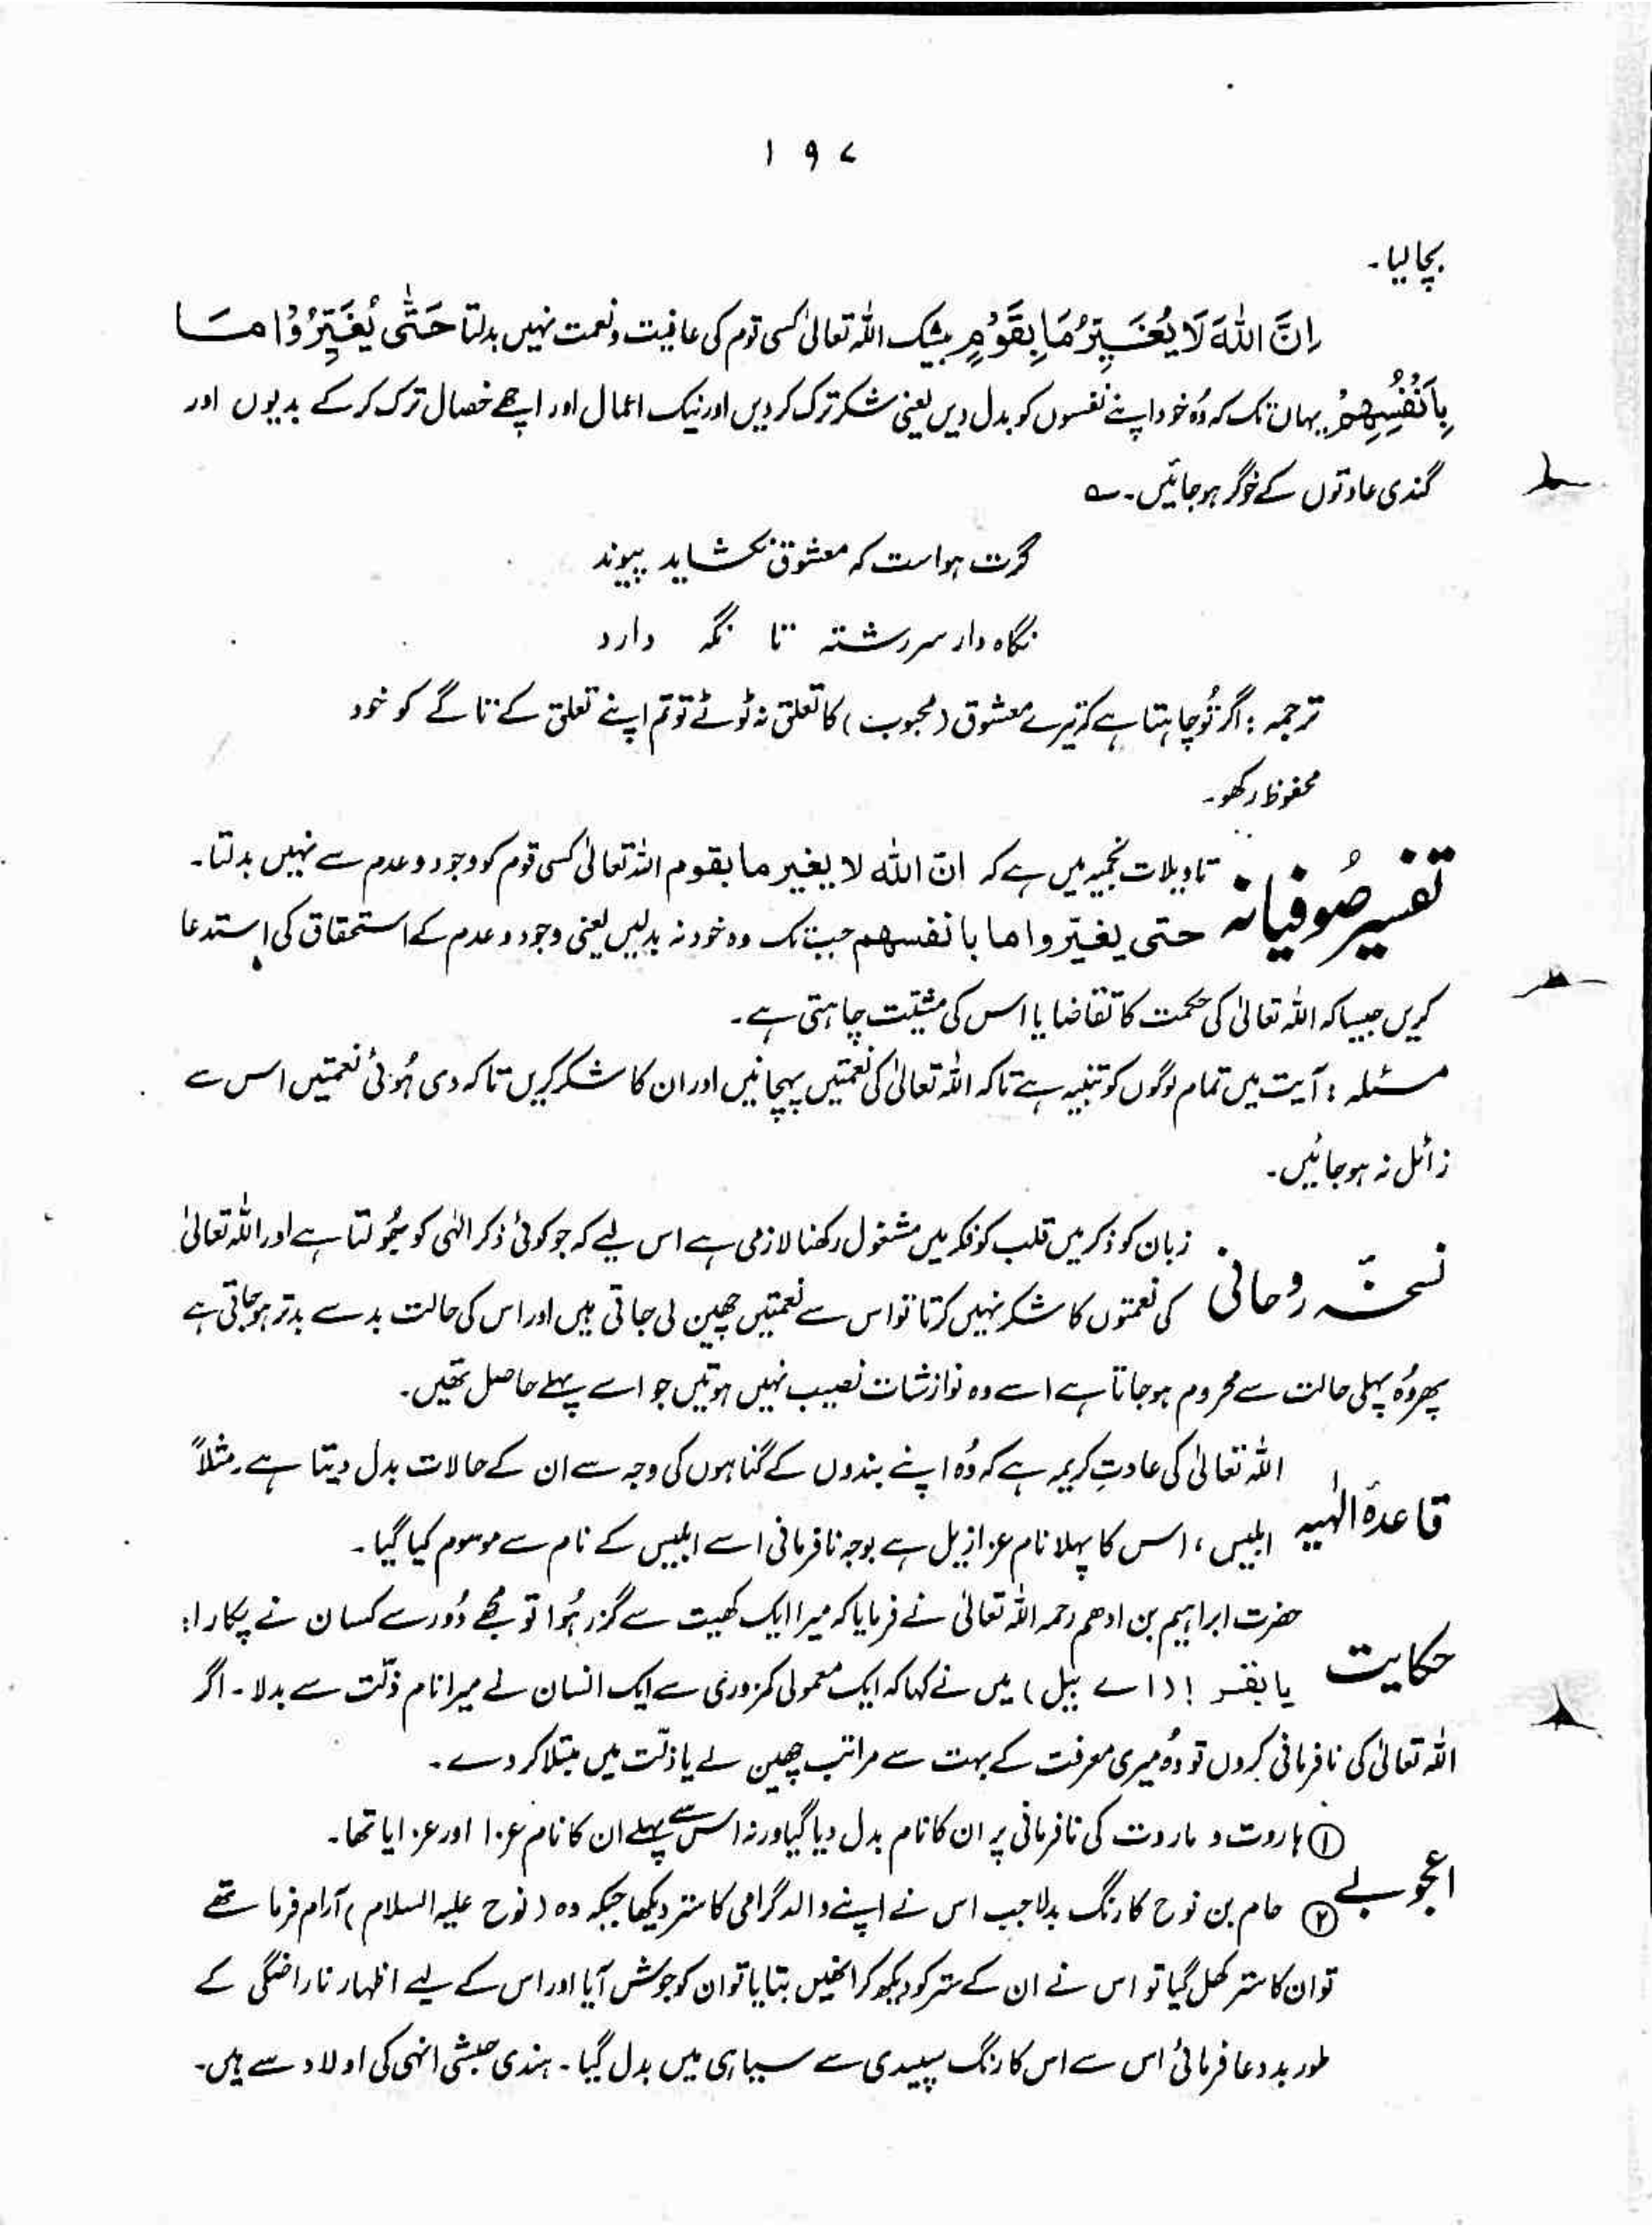 ۱۹۷
بچا لیا۔
اِنَّ اللّٰهَ لَا یُغَیِّرُ مَا بِقَوْمٍ بیشک اللہ تعالیٰ کسی قوم کی عافیت و نعمت نہیں بدلتا حَتّٰی یُغَیِّرُوْا مَا
بِاَنْفُسِهِمْ یہاں تک کہ وُہ خود اپنے نفسوں کو بدل دیں یعنی شکر ترک کر دیں اور نیک اعمال اور اچھے خصال ترک کر کے بدیوں اور
گندی عادتوں کے خوگر ہو جائیں۔ ؎
گرت ہواست کہ معشوق نکشاید پیوند
نگاہ دار سر رشتہ تا نگہ دارد
ترجمہ : اگر تُو چاہتا ہے کہ تیرے معشوق (محبوب) کا تعلق نہ ٹوٹے تو تم اپنے تعلق کے تاگے کو خود
محفوظ رکھو۔
تفسیر صُوفیانہ تاویلات نجمیہ میں ہے کہ انّ اللّٰه لا یغیر ما بقوم اللہ تعالیٰ کسی قوم کو وجود و عدم سے نہیں بدلتا۔
حتی یغیّروا ما بانفسهم جب تک وہ خود نہ بدلیں یعنی وجود و عدم کے استحقاق کی استدعا
کریں جیسا کہ اللہ تعالیٰ کی حکمت کا تقاضا یا اس کی مشیّت چاہتی ہے۔
مسئلہ : آیت میں تمام لوگوں کو تنبیہ ہے تاکہ اللہ تعالیٰ کی نعمتیں پہچانیں اور ان کا شکر کریں تاکہ دی ہُوئی نعمتیں اس سے
زائل نہ ہو جائیں۔
نسخہ روحانی زبان کو ذکر میں قلب کو فکر میں مشغول رکھنا لازمی ہے اس لیے کہ جو کوئی ذکر الٰہی کو بھُولتا ہے اور اللہ تعالیٰ
کی نعمتوں کا شکر نہیں کرتا تو اس سے نعمتیں چھین لی جاتی ہیں اور اس کی حالت بد سے بدتر ہو جاتی ہے
پھر وُہ پہلی حالت سے محروم ہو جاتا ہے اسے وہ نوازشات نصیب نہیں ہوتیں جو اسے پہلے حاصل تھیں۔
قاعدۂ الٰہیہ اللہ تعالیٰ کی عادتِ کریمہ ہے کہ وُہ اپنے بندوں کے گناہوں کی وجہ سے ان کے حالات بدل دیتا ہے۔ مثلاً
ابلیس ، اس کا پہلا نام عزازیل ہے بوجہ نافرمانی اسے ابلیس کے نام سے موسوم کیا گیا۔
حکایت حضرت ابراہیم بن ادھم رحمہ اللہ تعالیٰ نے فرمایا کہ میرا ایک کھیت سے گزر ہُوا تو مجھے دُور سے کسان نے پکارا :
یا بقر ! ( اے بیل ) میں نے کہا کہ ایک معمولی کمزوری سے ایک انسان نے میرا نام ذلّت سے بدلا۔ اگر
اللہ تعالیٰ کی نافرمانی کروں تو وُہ میری معرفت کے بہت سے مراتب چھین لے یا ذلّت میں مبتلا کر دے۔
① ہاروت و ماروت کی نافرمانی پر ان کا نام بدل دیا گیا ورنہ اس سے پہلے ان کا نام عزا اور عزایا تھا۔
اعجوبے ② حام بن نوح کا رنگ بدلا جب اس نے اپنے والد گرامی کا ستر دیکھا جبکہ وہ ( نوح علیہ السلام ) آرام فرما تھے
تو ان کا ستر کھل گیا تو اس نے ان کے ستر کو دیکھ کر انھیں بتایا تو ان کو جوش آیا اور اس کے لیے اظہار ناراضگی کے
طور بددعا فرمائی اس سے اس کا رنگ سپیدی سے سیاہی میں بدل گیا۔ ہندی حبشی انہی کی اولاد سے ہیں۔